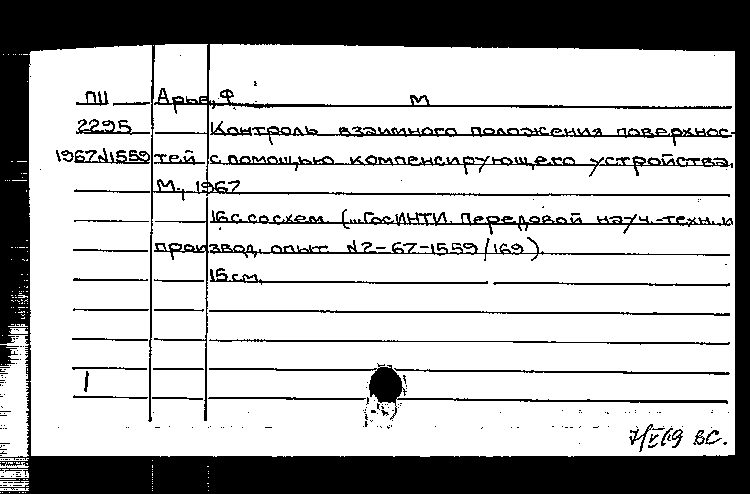 ПШ Арье, Ф М
2295 Контроль взаимного положения поверхнос-
1967№1559 тей с помощью компенсирующего устройства.
М., 1967
16с. со схем. (...ГосИНТИ. Передовой науч.-техн. и
производ. опыт №2-67-1559/169).
15 см.
1
ВС.